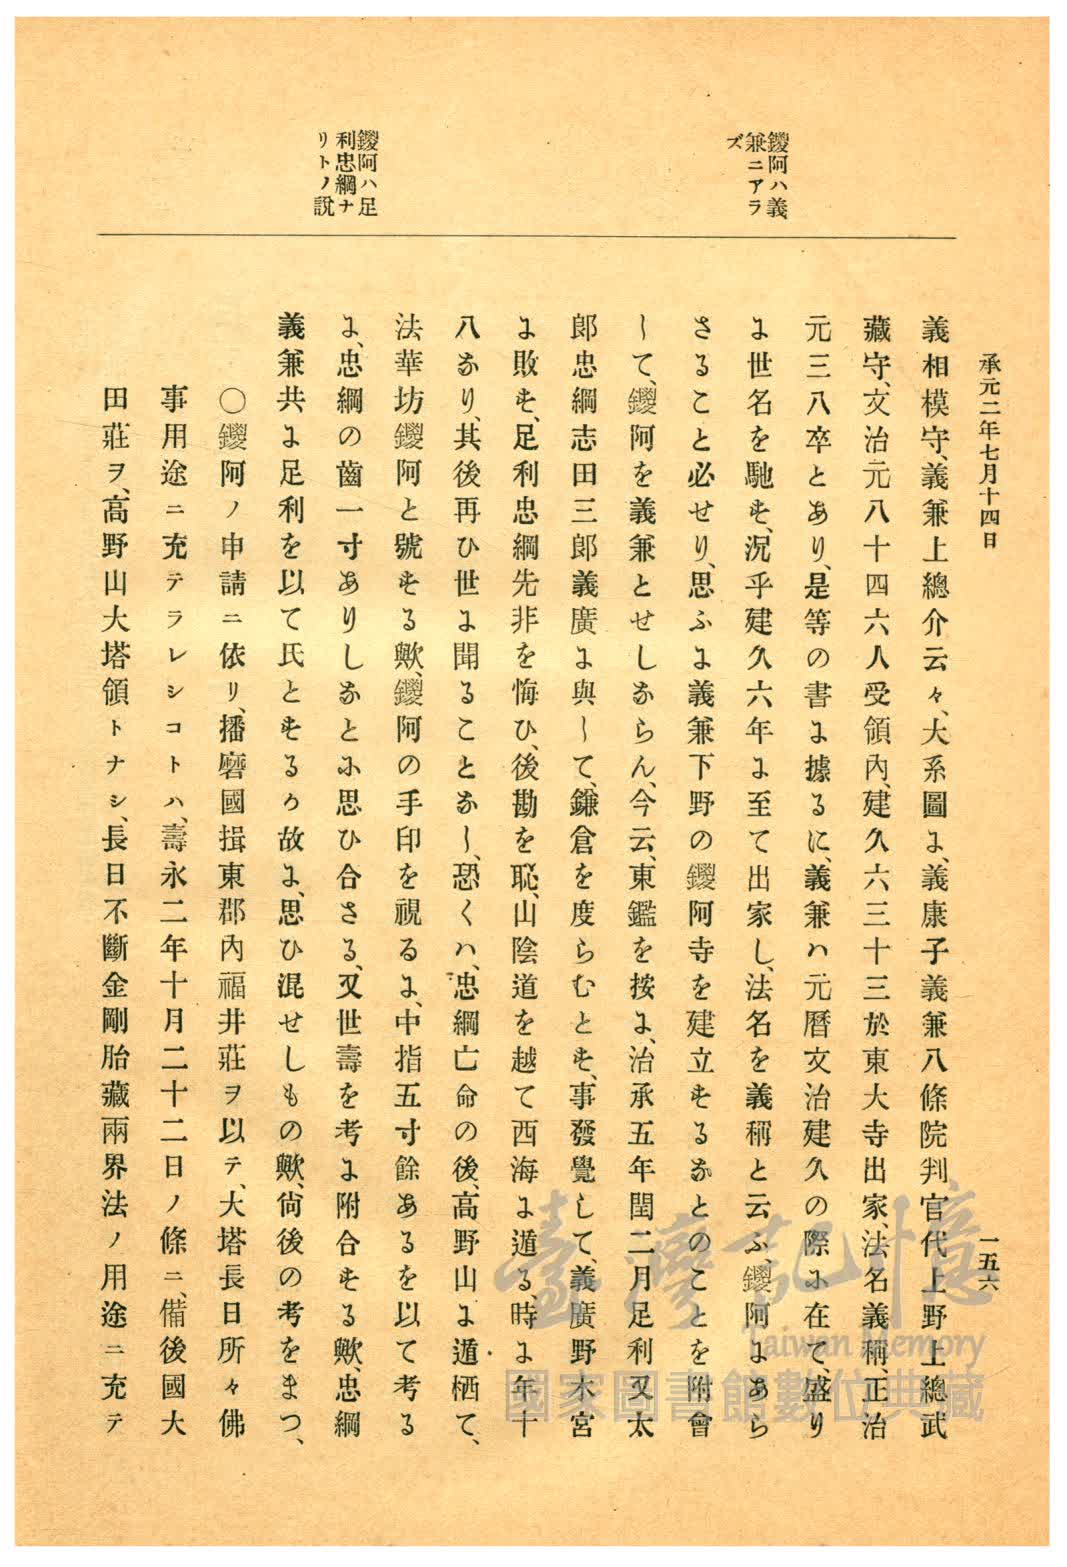 承元二年七月十四日
一五六
鑁阿ハ義
兼ニアラ
ズ
鑁阿ハ足
利忠綱ナ
リトノ説
義相模守、義兼上總介云々、大系圖に、義康子義兼八條院判官代上野上總武
藏守、文治元八十四六人受領內、建久六三十三於東大寺出家、法名義稱、正治
元三八卒とあり、是等の書に據るに、義兼ハ元曆文治建久の際に在て、盛り
に世名を馳す、況乎建久六年に至て出家し、法名を義稱と云ふ、鑁阿にあら
さること必せり、思ふに義兼下野の鑁阿寺を建立するなとのことを附會
して、鑁阿を義兼とせしならん、今云、東鑑を按に、治承五年閏二月足利又太
郎忠綱志田三郎義廣に與して、鎌倉を度らむとす、事發覺して、義廣野木宮
に敗す、足利忠綱先非を悔ひ、後勘を恥、山陰道を越て西海に遁る、時に年十
八なり、其後再ひ世に聞ることなし、恐くハ、忠綱亡命の後、高野山に遁栖て、
法華坊鑁阿と號する歟、鑁阿の手印を視るに、中指五寸餘あるを以て考る
に、忠綱の齒一寸ありしなとに思ひ合さる、又世壽を考に附合する歟、忠綱
義兼共に足利を以て氏とするか故に、思ひ混せしもの歟、尙後の考をまつ、
〇鑁阿ノ申請ニ依リ、播磨國揖東郡內福井莊ヲ以テ、大塔長日所々佛
事用途ニ充テラレシコトハ、壽永二年十月二十二日ノ條ニ、備後國大
田莊ヲ、高野山大塔領トナシ、長日不斷金剛胎藏兩界法ノ用途ニ充テ
臺灣記憶
Taiwan Memory
國家圖書館數位典藏